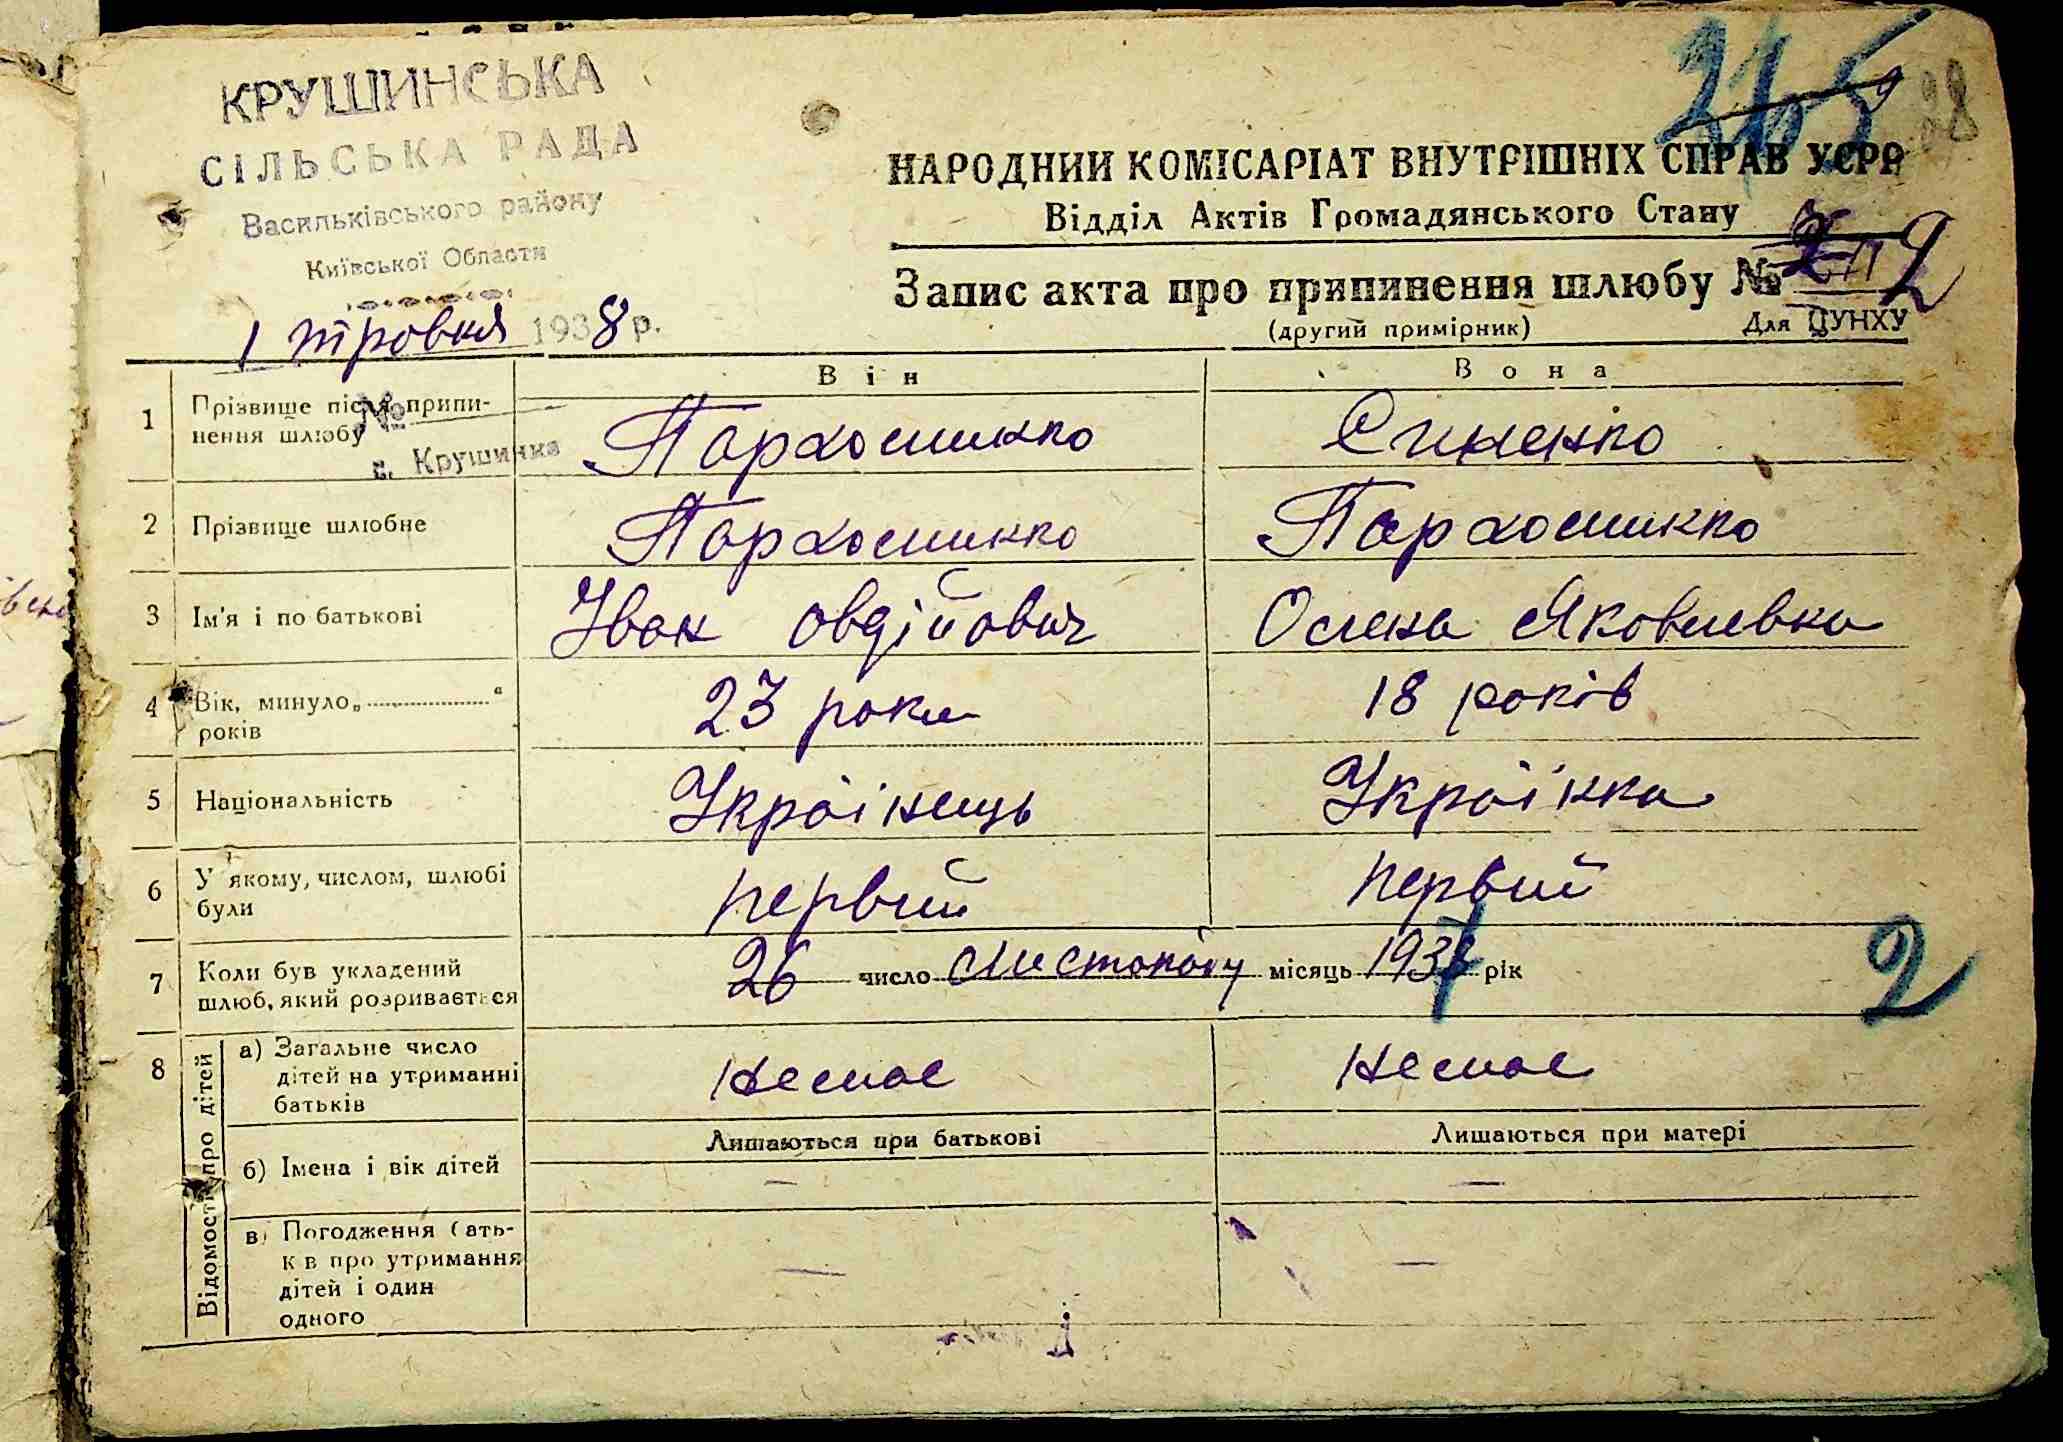 КРУШИНСЬКА
СІЛЬСЬКА РАДА
Васильківського району
Київської Области
1 тровня 1938 р.
№
с. Крушинка
365
28
НАРОДНИЙ КОМІСАРІАТ ВНУТРІШНІХ СПРАВ УСРР
Відділ Актів Громадянського Стану
Запис акта про припинення шлюбу № 2
(другий примірник) Для ЦУНХУ
Він Вона
1 Прізвище після припи-
нення шлюбу Пархоменко Синенко
2 Прізвище шлюбне Пархоменко Пархоменко
3 Ім'я і по батькові Іван Овдійович Олена Яковлевна
4 Вік, минуло „ “
років 23 роки 18 років
5 Національність Українець Українка
6 У якому, числом, шлюбі
були первий первий
7 Коли був укладений
шлюб, який розривається 26 число Листопаду місяць 1937 рік
2
8 Відомості про дітей
а) Загальне число
дітей на утриманні
батьків Немає Немає
Лишаються при батькові Лишаються при матері
б) Імена і вік дітей — —
в) Погодження бать-
ків про утримання
дітей і один
одного — —